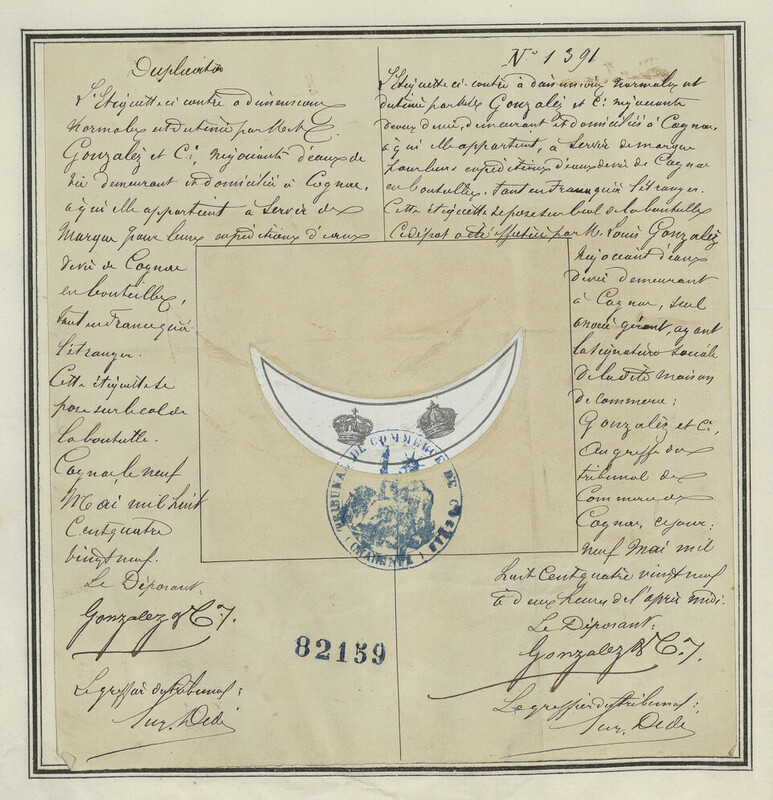 Duplicata
L'Etiquette ci contre à dimensions
normales est détenu par M.M.
Gonzalèz et Cie, négociants d'eaux de
vie demeurant et domiciliés à Cognac,
à qui elle appartient à servir de
marque pour leurs expéditions d'eaux
de vie de Cognac
en bouteilles,
tant en France qu'à
l'étranger.
Cette étiquette se
pose sur le col de
la bouteille.
Cognac, le neuf
Mai mil huit
cent quatre
vingt neuf.
Le Déposant:
Gonzalez & Cie.
Le greffier du tribunal:
N° 1391
L'Etiquette ci-contre à dimensions normales est
détenu par M.M. Gonzalèz et Cie négociants
d'eaux de vie, demeurant et domiciliés à Cognac,
à qui elle appartient, à servir de marque
pour leurs expéditions d'eaux de vie de Cognac
en bouteilles, tant en France qu'à l'étranger.
Cette étiquette se pose sur le col de la bouteille
Ce dépot a été effectué par Mr Louis Gonzalèz
négociant d'eaux
de vie demeurant
à Cognac, seul
associé gérant, ayant
la signature sociale
de la dite maison
de commerce:
Gonzalèz et Cie,
au greffe du
tribunal de
Commerce de
Cognac, ce jour:
neuf Mai mil
huit cent quatre vingt neuf
à deux heures de l'après midi.
Le Déposant:
Gonzalez & Cie.
Le greffier du tribunal:
TRIBUNAL DE COMMERCE DE COGNAC
(CHARENTE)
82159